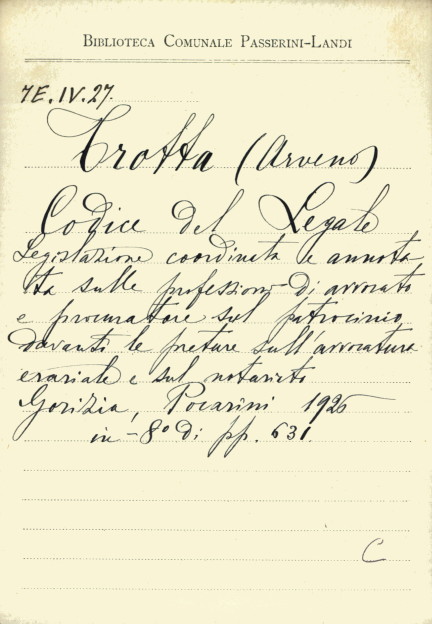 BIBLIOTECA COMUNALE PASSERINI-LANDI
7E.IV.27.
Trotta (Arveno)
Codice del Legale
Legislazione coordinata e annota
ta sulle professioni di avvocato
e procuratore sul patrocinio
davanti le preture sull'avvocatura
erariale e sul notariato
Gorizia, Pocarini 1926
in-8° di pp. 631.
C